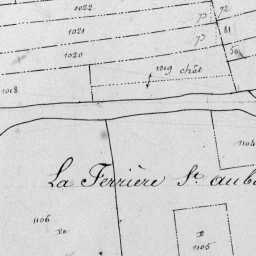 1022
p 72
1021
p 81
50
1020
1019 chât
1018
1104
La Ferrière St. aub
1106
1105